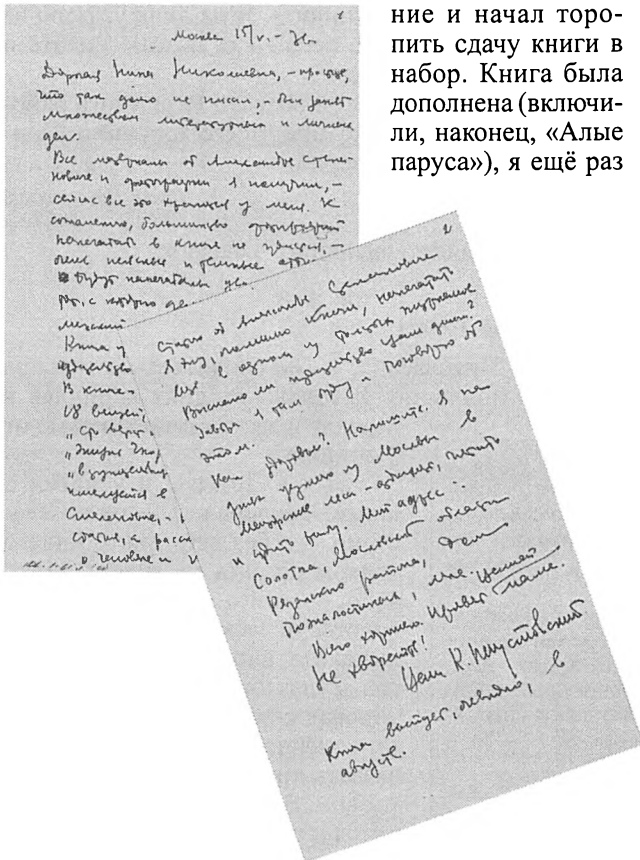 ние и начал торо-
пить сдачу книги в
набор. Книга была
дополнена (включи-
ли, наконец, «Алые
паруса»), я ещё раз
1
Москва 15/V.–
Дорогая Нина Николаевна, – простите,
что так долго не писал, – был занят
множеством литературных и личных
дел.
Все материалы об Александре Степа-
новиче и фотографии я получил, –
сейчас все это хранится у меня. К
сожалению, большинство фотографий
напечатать в книге не удастся, –
очень неясные и темные
будут напечатаны
Книга
издательство
В книге –
18 вещей,
включается в
Степановиче, –
статья, а расс
о человеке и
2
статью об Александре Степановиче
я дую, помимо книги, напечатать
ещё в одном из толстых журналов.
Выслало ли издательство Вам деньги?
Завтра я там буду и поговорю об
этом.
Как здоровье? Напишите. Я на
днях уезжаю из Москвы в
Мещорские леса – отдыхать, писать
и удить рыбу. Мой адрес:
Солотча, Московской области
Рязанского района, дом
Пожалостиной, мне.
Всего хорошего. Привет маме.
Не хворайте!
Ваш К. Паустовский
Книга выйдет, очевидно, в
августе.